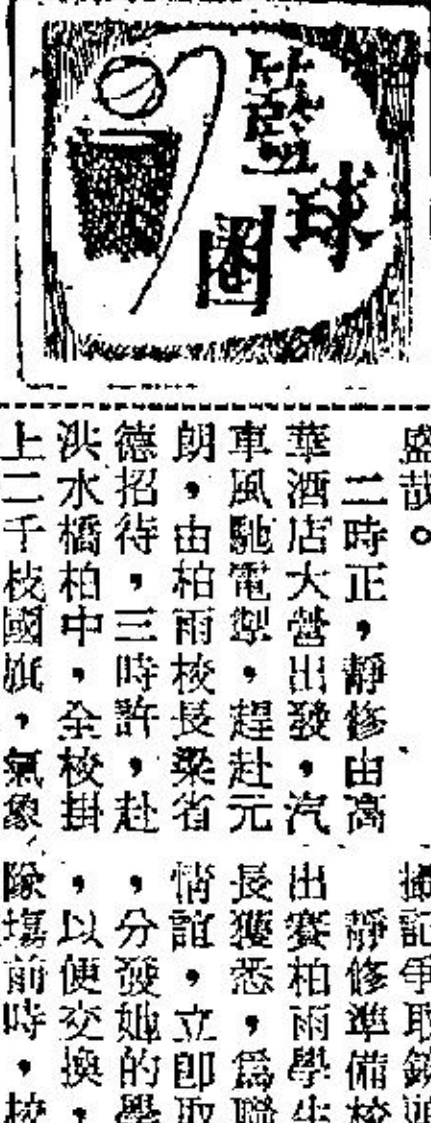 籃球圈
盛哉。
二時正，靜修由高
華酒店大營出發，汽
車風馳電掣，趕赴元
朗，由柏雨校長梁省
德招待，三時許，赴
洪水橋柏中，全校掛
上二千枝國旗，氣象
攝記爭取鏡頭
靜修準備校
出賽柏雨學生
長獲悉，爲聯
情誼，立即取
，分發她的學
，以便交換，
塲前時，校